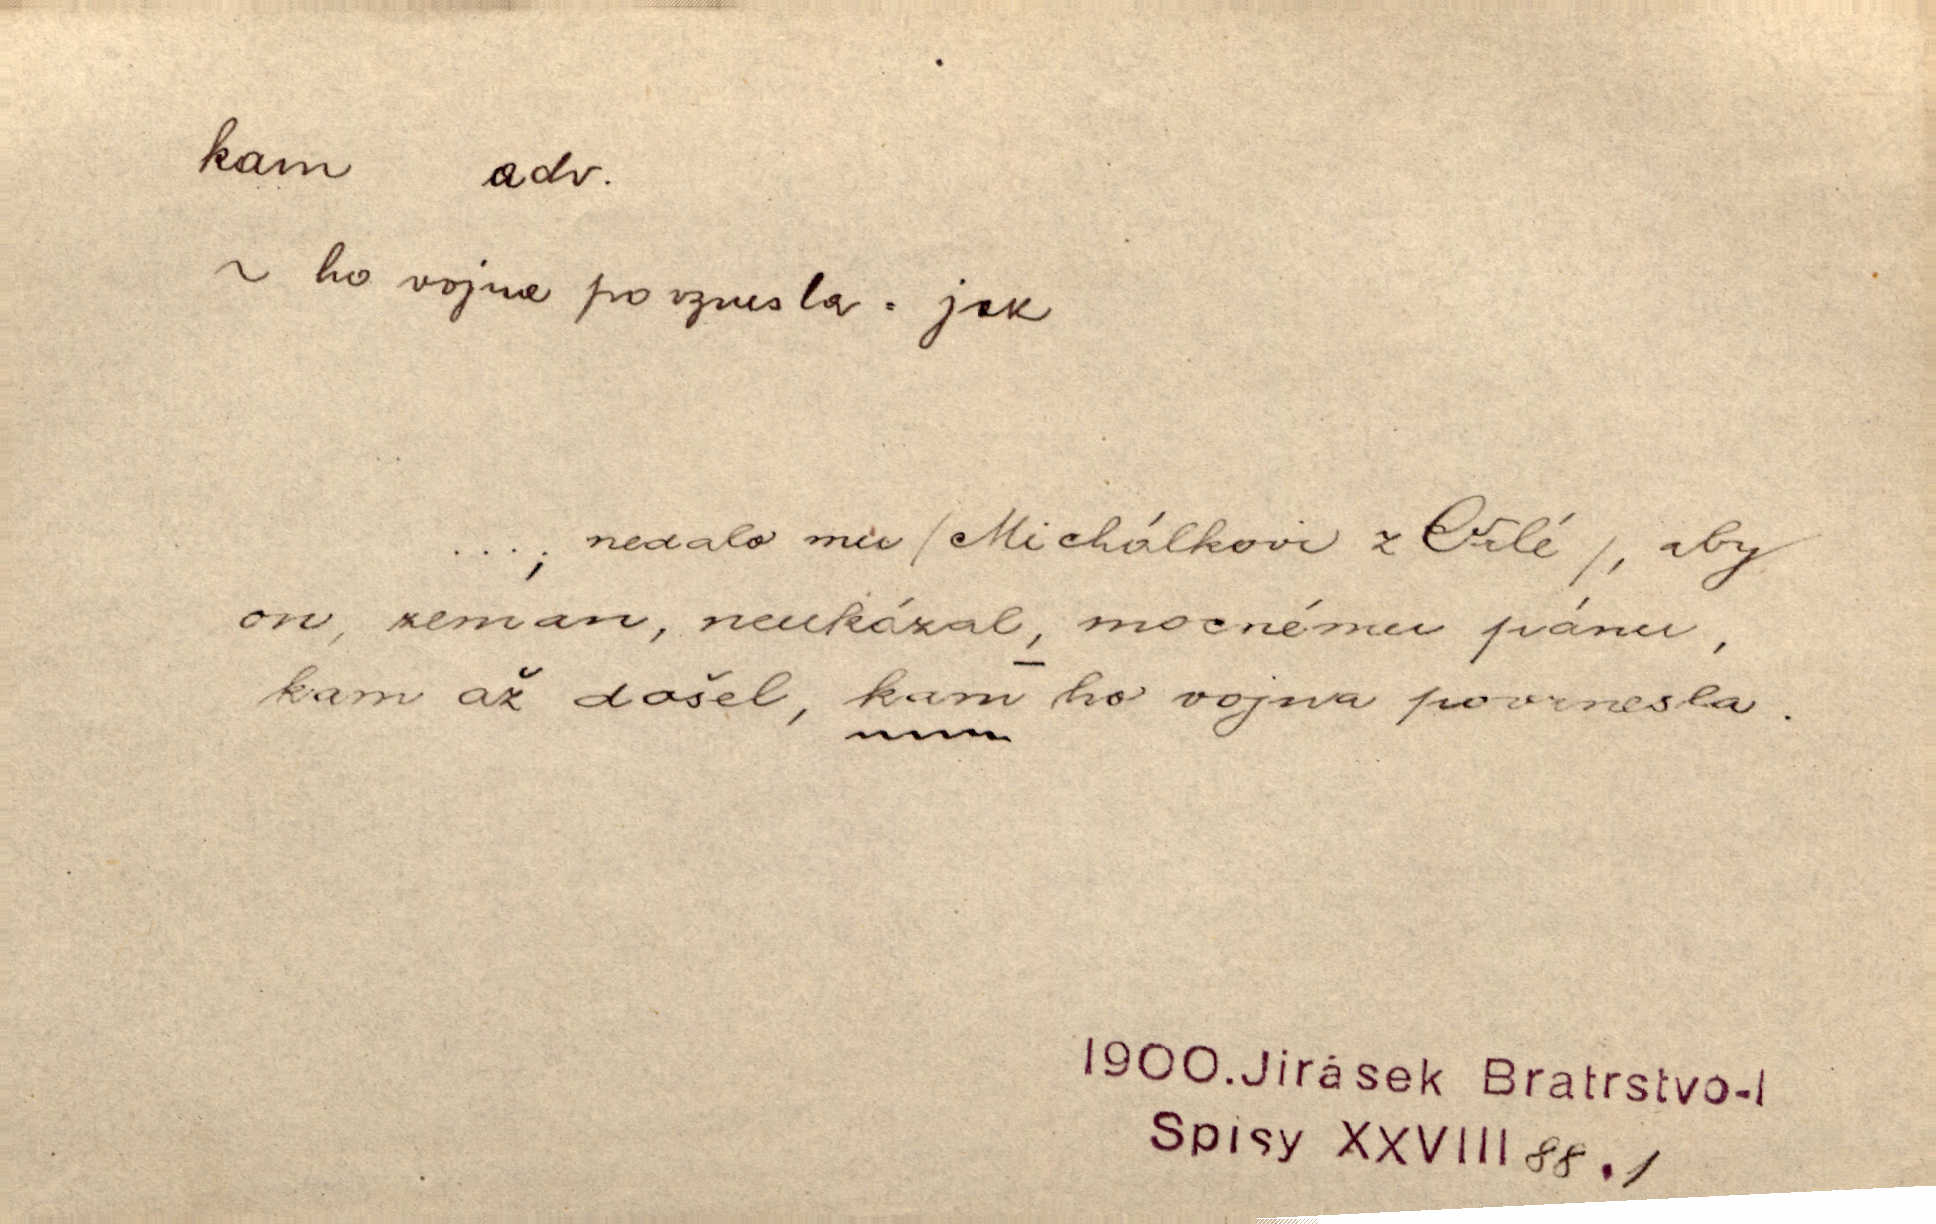 kam adv.
~ ho vojna povznesla = jak
...; nedalo mu /Michálkovi z Orlé/, aby
on, zeman, neukázal, mocnému pánu,
kam až došel, kam ho vojna povznesla.
1900. Jirásek Bratrstvo-I
Spisy XXVIII 88.1